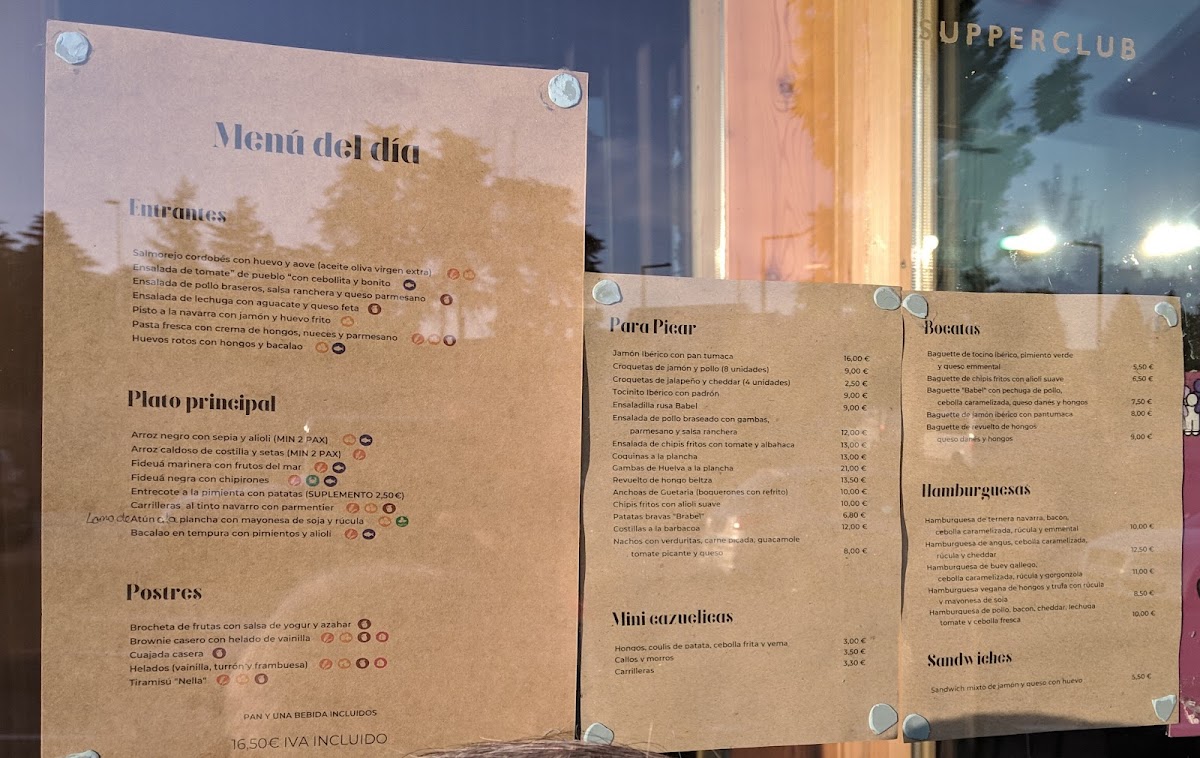 SUPPERCLUB
Menú del día
Entrantes
Salmorejo cordobés con huevo y aove (aceite oliva virgen extra)
Ensalada de tomate" de pueblo "con cebollita y bonito
Ensalada de pollo braseros, salsa ranchera y queso parmesano
Ensalada de lechuga con aguacate y queso feta
Pisto a la navarra con jamón y huevo frito
Pasta fresca con crema de hongos, nueces y parmesano
Huevos rotos con hongos y bacalao
Plato principal
Arroz negro con sepia y alioli (MIN 2 PAX)
Arroz caldoso de costilla y setas (MIN 2 PAX)
Fideuá marinera con frutos del mar
Fideuá negra con chipirones
Entrecote a la pimienta con patatas (SUPLEMENTO 2,50€)
Carrilleras al tinto navarro con parmentier
Lomo de Atún a la plancha con mayonesa de soja y rúcula
Bacalao en tempura con pimientos y alioli
Postres
Brocheta de frutas con salsa de yogur y azahar
Brownie casero con helado de vainilla
Cuajada casera
Helados (vainilla, turrón y frambuesa)
Tiramisú "Nella"
PAN Y UNA BEBIDA INCLUIDOS
16,50€ IVA INCLUIDO
Para Picar
Jamón Ibérico con pan tumaca 16,00 €
Croquetas de jamón y pollo (8 unidades) 9,00 €
Croquetas de jalapeño y cheddar (4 unidades) 2,50 €
Tocinito Ibérico con padrón 9,00 €
Ensaladilla rusa Babel 9,00 €
Ensalada de pollo braseado con gambas,
parmesano y salsa ranchera 12,00 €
Ensalada de chipis fritos con tomate y albahaca 13,00 €
Coquinas a la plancha 13,00 €
Gambas de Huelva a la plancha 21,00 €
Revuelto de hongo beltza 13,50 €
Anchoas de Guetaria (boquerones con refrito) 10,00 €
Chipis fritos con alioli suave 10,00 €
Patatas bravas "Brabel" 6,80 €
Costillas a la barbacoa 12,00 €
Nachos con verduritas, carne picada, guacamole
tomate picante y queso 8,00 €
Mini cazuelicas
Hongos, coulis de patata, cebolla frita y yema 3,00 €
Callos y morros 3,50 €
Carrilleras 3,30 €
Bocatas
Baguette de tocino ibérico, pimiento verde
y queso emmental 5,50 €
Baguette de chipis fritos con alioli suave 6,50 €
Baguette "Babel" con pechuga de pollo,
cebolla caramelizada, queso danés y hongos 7,50 €
Baguette de jamón ibérico con pantumaca 8,00 €
Baguette de revuelto de hongos
queso danés y hongos 9,00 €
Hamburguesas
Hamburguesa de ternera navarra, bacon,
cebolla caramelizada, rúcula y emmental 10,00 €
Hamburguesa de angus, cebolla caramelizada,
rúcula y cheddar 12,50 €
Hamburguesa de buey gallego,
cebolla caramelizada, rúcula y gorgonzola 11,00 €
Hamburguesa vegana de hongos y trufa con rúcula
y mayonesa de soja 8,50 €
Hamburguesa de pollo, bacon, cheddar, lechuga
tomate y cebolla fresca 10,00 €
Sandwiches
Sandwich mixto de jamón y queso con huevo 5,50 €